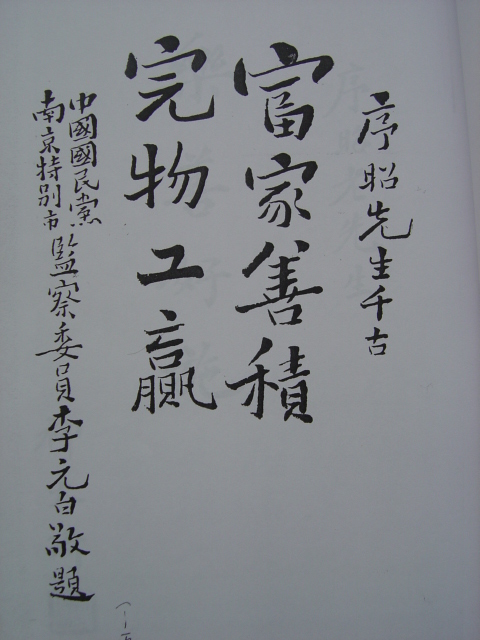 序昭先生千古
富家善積
完物工贏
中國國民黨
南京特別市監察委員李元白敬題